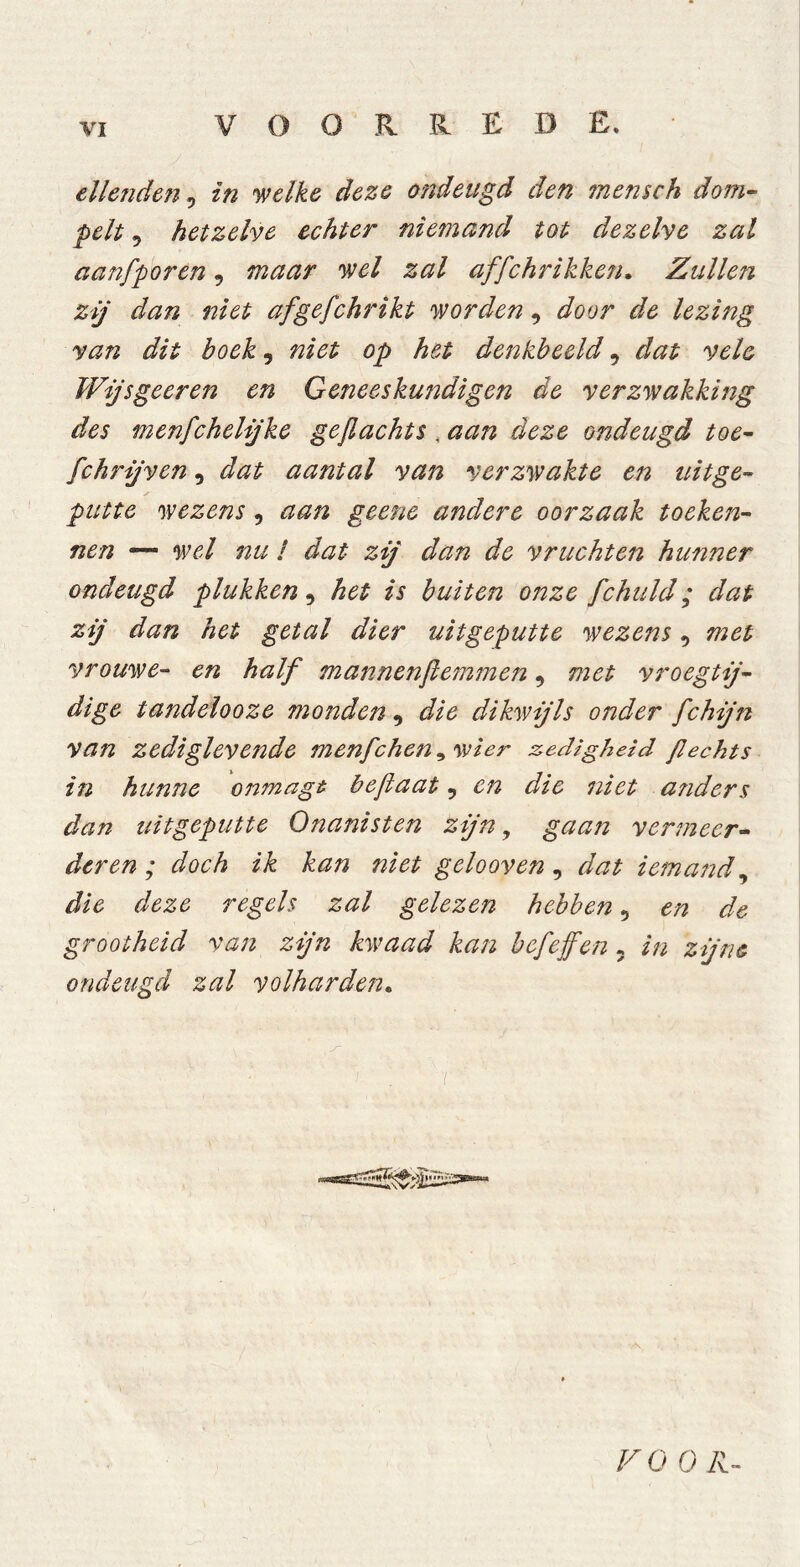 VI VOORREDE.
ellenden, in welke deze ondeugd den mensch dom-
pelt, hetzelve echter niemand tot dezelve zal
aanſporen, maar wel zal afſchrikken. Zullen
zij dan niet afgeſchrikt worden, door de lezing
van dit boek, niet op het denkbeeld, dat vele
Wijsgeeren en Geneeskundigen de verzwakking
des menſchelijke geſlachts, aan deze ondeugd toe-
ſchrijven, dat aantal van verzwakte en uitge-
putte wezens, aan geene andere oorzaak toeken-
nen — wel nu! dat zij dan de vruchten hunner
ondeugd plukken, het is buiten onze ſchuld; dat
zij dan het getal dier uitgeputte wezens, met
vrouwe- en half mannenſtemmen, met vroegtij-
dige tandelooze monden, die dikwijls onder ſchijn
van zediglevende menſchen, wier zedigheid ſlechts
in hunne onmagt beſtaat, en die niet anders
dan uitgeputte Onanisten zijn, gaan vermeer-
deren; doch ik kan niet gelooven, dat iemand,
die deze regels zal gelezen hebben, en de
grootheid van zijn kwaad kan beſeffen, in zijne
ondeugd zal volharden.
VOOR-